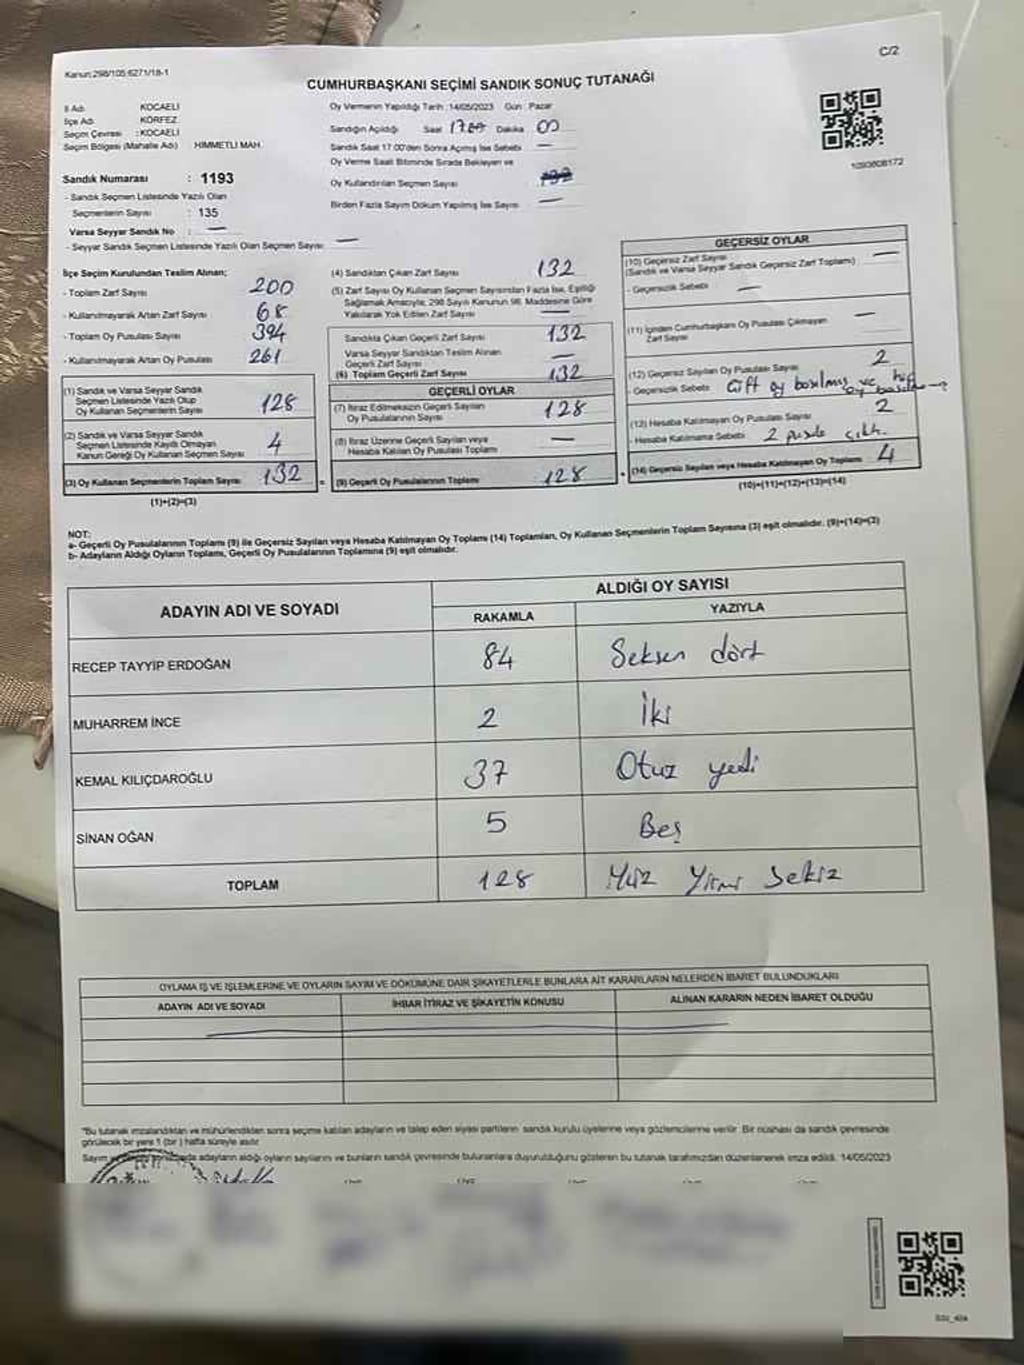 Kanun:298/105 6271/18-1
C/2
CUMHURBAŞKANI SEÇİMİ SANDIK SONUÇ TUTANAĞI
İl Adı KOCAELİ
İlçe Adı KÖRFEZ
Seçim Çevresi : KOCAELİ
Seçim Bölgesi (Mahalle Adı) HİMMETLİ MAH.
Sandık Numarası : 1193
- Sandık Seçmen Listesinde Yazılı Olan
Seçmenlerin Sayısı : 135
Varsa Seyyar Sandık No : —
- Seyyar Sandık Seçmen Listesinde Yazılı Olan Seçmen Sayısı : —
Oy Vermenin Yapıldığı Tarih : 14/05/2023 Gün : Pazar
Sandığın Açıldığı Saat 17:00 Dakika 00
Sandık Saat 17.00'den Sonra Açılmış İse Sebebi —
Oy Verme Saati Bitiminde Sırada Bekleyen ve
Oy Kullandırılan Seçmen Sayısı
Birden Fazla Sayım Döküm Yapılmış İse Sayısı —
1093808172
İlçe Seçim Kurulundan Teslim Alınan;
- Toplam Zarf Sayısı 200
- Kullanılmayarak Artan Zarf Sayısı 68
- Toplam Oy Pusulası Sayısı 394
- Kullanılmayarak Artan Oy Pusulası 261
(1) Sandık ve Varsa Seyyar Sandık
Seçmen Listesinde Yazılı Olup
Oy Kullanan Seçmenlerin Sayısı 128
(2) Sandık ve Varsa Seyyar Sandık
Seçmen Listesinde Kayıtlı Olmayan
Kanun Gereği Oy Kullanan Seçmen Sayısı 4
(3) Oy Kullanan Seçmenlerin Toplam Sayısı 132
(1)+(2)=(3)
(4) Sandıktan Çıkan Zarf Sayısı 132
(5) Zarf Sayısı Oy Kullanan Seçmen Sayısından Fazla İse, Eşitliği
Sağlamak Amacıyla, 298 Sayılı Kanunun 98. Maddesine Göre
Yakılarak Yok Edilen Zarf Sayısı —
Sandıkta Çıkan Geçerli Zarf Sayısı 132
Varsa Seyyar Sandıktan Teslim Alınan
Geçerli Zarf Sayısı —
(6) Toplam Geçerli Zarf Sayısı 132
GEÇERLİ OYLAR
(7) İtiraz Edilmeksizin Geçerli Sayılan
Oy Pusulalarının Sayısı 128
(8) İtiraz Üzerine Geçerli Sayılan veya
Hesaba Katılan Oy Pusulası Toplamı —
(9) Geçerli Oy Pusulalarının Toplamı 128
GEÇERSİZ OYLAR
(10) Geçersiz Zarf Sayısı
(Sandık ve Varsa Seyyar Sandık Geçersiz Zarf Toplamı) —
- Geçersizlik Sebebi —
(11) İçinden Cumhurbaşkanı Oy Pusulası Çıkmayan
Zarf Sayısı —
(12) Geçersiz Sayılan Oy Pusulası Sayısı 2
- Geçersizlik Sebebi Çift oy basılmış ve hiç
(13) Hesaba Katılmayan Oy Pusulası Sayısı 2
- Hesaba Katılmama Sebebi 2 pusula çıktı.
(14) Geçersiz Sayılan veya Hesaba Katılmayan Oy Toplamı 4
(10)+(11)+(12)+(13)=(14)
NOT:
a- Geçerli Oy Pusulalarının Toplamı (9) ile Geçersiz Sayılan veya Hesaba Katılmayan Oy Toplamı (14) Toplamları, Oy Kullanan Seçmenlerin Toplam Sayısına (3) eşit olmalıdır. (9)+(14)=(3)
b- Adayların Aldığı Oyların Toplamı, Geçerli Oy Pusulalarının Toplamına (9) eşit olmalıdır.
ADAYIN ADI VE SOYADI
ALDIĞI OY SAYISI
RAKAMLA YAZIYLA
RECEP TAYYİP ERDOĞAN 84 Seksen dört
MUHARREM İNCE 2 İki
KEMAL KILIÇDAROĞLU 37 Otuz yedi
SİNAN OĞAN 5 Beş
TOPLAM 128 Yüz Yirmi Sekiz
OYLAMA İŞ VE İŞLEMLERİNE VE OYLARIN SAYIM VE DÖKÜMÜNE DAİR ŞİKAYETLERLE BUNLARA AİT KARARLARIN NELERDEN İBARET BULUNDUKLARI
ADAYIN ADI VE SOYADI İHBAR İTİRAZ VE ŞİKAYETİN KONUSU ALINAN KARARIN NEDEN İBARET OLDUĞU
"Bu tutanak imzalandıktan ve mühürlendikten sonra seçime katılan adayların ve talep eden siyasi partilerin sandık kurulu üyelerine veya gözlemcilerine verilir. Bir nüshası da sandık çevresinde
görülecek bir yere 1 (bir) hafta süreyle asılır
Sayım adayların aldığı oyların sayılarını ve bunların sandık çevresinde bulunanlara duyurulduğunu gösteren bu tutanak tarafımızdan düzenlenerek imza edildi. 14/05/2023